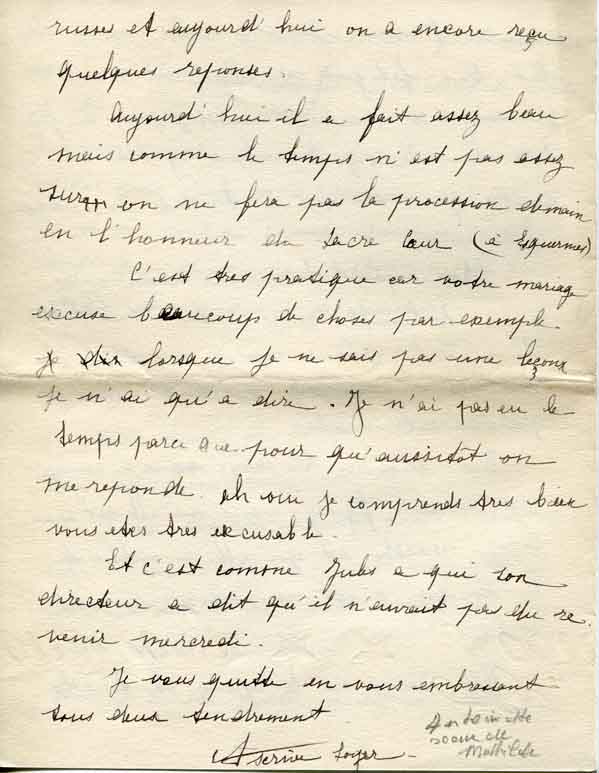 russes et aujourd'hui on a encore reçu
quelques reponses.
Aujourd'hui il a fait assez beau
mais comme le temps n'est pas assez
sur on ne fera pas la procession demain
en l'honneur du Sacre Cœur (à Esquermes)
C'est tres pratique car votre mariage
excuse beaucoup de choses par exemple.
lorsque je ne sais pas une leçon
je n'ai qu'a dire. Je n'ai pas eu le
temps parce que pour qu'aussitôt on
me reponde ah oui je comprends tres bien
vous etes tres excusable.
Et c'est comme Jules a qui son
directeur a dit qu'il n'aurait pas du re
venir mercredi.
Je vous quitte en vous embrassant
tous deux tendrement
Antoinette
soeur de
Mathilde